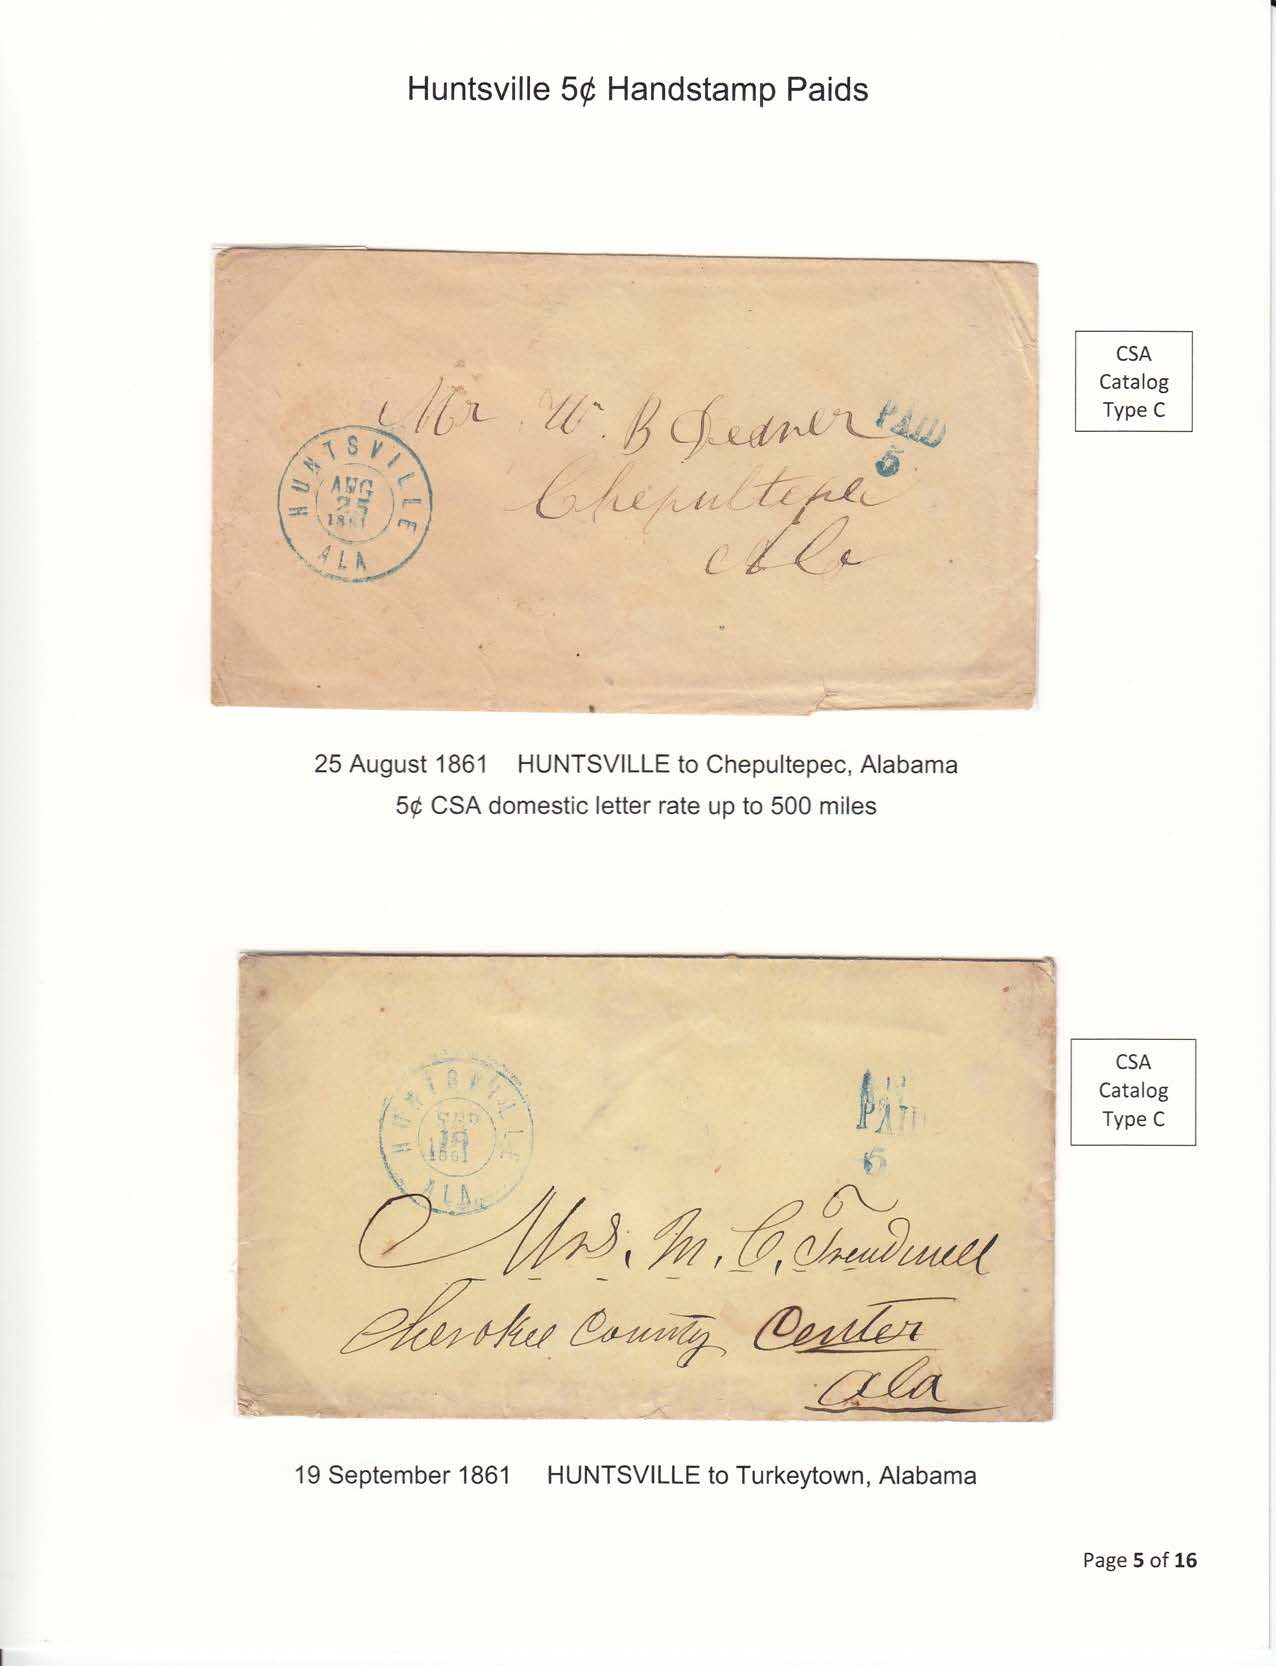 Huntsville 5¢ Handstamp Paids
HUNTSVILLE
AUG
25
1861
ALA
Mr Wm. B Dedner
Chepultepec
Ala
PAID
5
CSA
Catalog
Type C
25 August 1861 HUNTSVILLE to Chepultepec, Alabama
5¢ CSA domestic letter rate up to 500 miles
HUNTSVILLE
SEP
19
1861
ALA.
PAID
5
Mrs. M. C. Treadwell
Cherokee County Center
Ala
CSA
Catalog
Type C
19 September 1861 HUNTSVILLE to Turkeytown, Alabama
Page 5 of 16